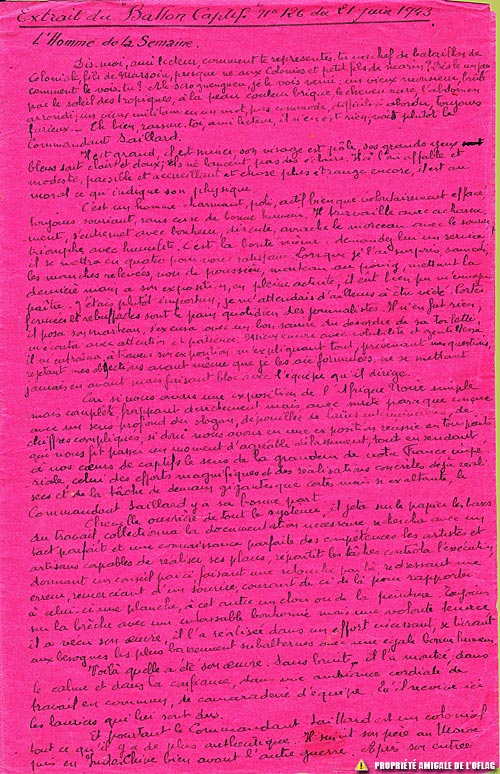 Extrait du Ballon Captif N° 126 du 21 juin 1943
L'Homme de la Semaine.
Dis-moi, ami lecteur, comment te représentes-tu un chef de bataillon de
Coloniale, fils de marsouin, presque né aux Colonies et petit fils de marin?
comment le vois-tu? je le vois venir: un vieux monsieur, brûlé
par le soleil des tropiques, à la peau couleur brique, le cheveu rare, l'abdomen
arrondi: un vieux militaire en un mot, pas commode, difficile à aborder, toujours
furieux. Eh bien, rassure-toi, ami lecteur, il n'en est rien, vois plutôt le
Commandant Saillard.
Il est grand, il est mince, son visage est pâle, ses grands yeux
bleus sont clairs et doux; ils ne lancent pas des éclairs. Il a l'air affable et
modeste, paisible et accueillant et chose plus étrange encore, il est au
moral ce qu'indique son physique.
C'est un homme charmant, poli, actif bien que volontairement effacé,
toujours souriant, sans cesse de bonne humeur. Il travaille avec acharne-
ment, s'entremet avec bonheur, discute, arrache le morceau avec le sourire
triomphe avec humilité. C'est la bonté même: demandez lui un service
il se mettra en quatre pour vous satisfaire. Lorsque je l'ai surpris, samedi,
les manches relevées, noir de poussière, marteau au poing, mettant la
dernière main à son exposition, en pleine activité, il eût bien pu m'envoyer
paître. J'étais plutôt importun, je m'attendais d'ailleurs à être vidé. Portes
fermées et rebuffades sont le pain quotidien des journalistes. Il n'en fut rien
il posa son marteau, s'excusa avec un bon sourire du désordre de sa toilette,
m'écouta avec attention et patience. Mieux encore avec volubilité et gentillesse
il m'entraîna à travers son exposition m'expliquant tout, prévenant mes questions,
rejetant mes objections avant même que je les aie formulées, ne se mettant
jamais en avant mais faisant bloc avec l'équipe qu'il dirige.
Car si nous avons une exposition de l'Afrique Noire simple
mais complète frappant directement mais avec suite parce que conçue
avec un sens profond du slogan, dépouillée de
chiffres compliqués, si donc nous avons eu une exposition réussie en tous points
qui nous fit passer un moment d'agréable délassement, tout en rendant
à nos cœurs de captifs le sens de la grandeur de notre France impé-
riale, celui des efforts magnifiques et des réalisations concrètes déjà réali-
sées et de la tâche de demain gigantesque certes mais si exaltante, le
Commandant Saillard y a sa bonne part.
Cheville ouvrière de tout le système, il jeta sur le papier les bases
du travail, collectionna la documentation nécessaire, rechercha avec un
tact parfait et une connaissance parfaite des compétences les artistes et
artisans capables de réaliser ses plans, répartit les tâches contrôla l'exécution
donnant un conseil par ci faisant une retouche par là redressant une
erreur, remerciant d'un sourire, courant de ci de là pour rapporter
à celui-ci une planche, à cet autre un clou ou de la peinture. Toujours
sur la brèche avec une inlassable bonhomie mais une volonté tenace
il a vécu son œuvre, il l'a réalisée dans un effort incessant, se livrant
aux besognes les plus bassement subalternes avec une égale bonne humeur.
Voilà quelle a été son œuvre. Sans bruit, il l'a montée dans
le calme et dans la confiance, dans une ambiance cordiale de
travail en commun, de camaraderie d'équipe. Qu'il reçoive ici
les lauriers qui lui sont dus.
Et pourtant le Commandant Saillard est un colonial
tout ce qu'il y a de plus authentique. Il suivit son père au Maroc
puis en Indochine bien avant l'autre guerre. Après son entrée
PROPRIÉTÉ AMICALE DE L'OFLAG